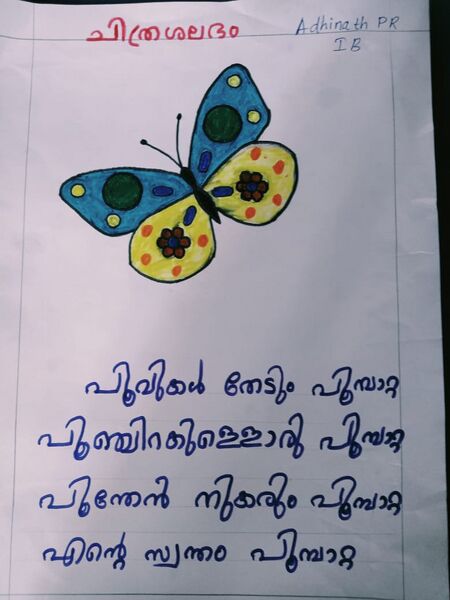 ചിത്രശലഭം
Adhinath PR
I B
പൂവുകൾ തേടും പൂമ്പാറ്റ
പൂഞ്ചിറകുള്ളൊരു പൂമ്പാറ്റ
പൂന്തേൻ നുകരും പൂമ്പാറ്റ
എന്റെ സ്വന്തം പൂമ്പാറ്റ